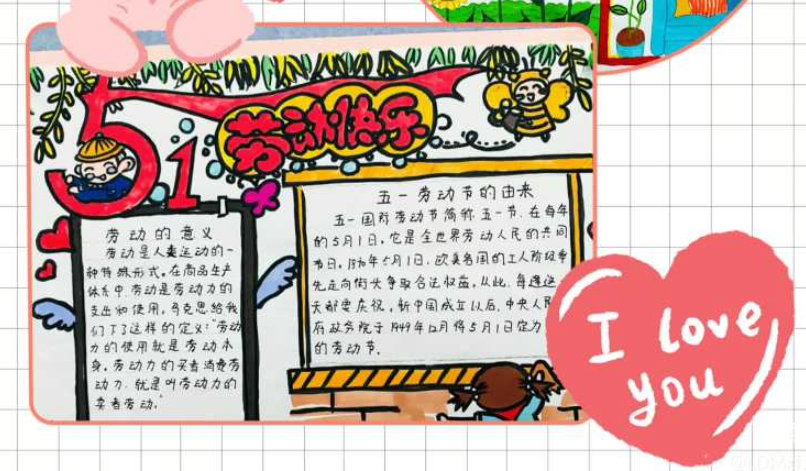 51
劳动快乐
劳动的意义
劳动是人类运动的一
种特殊形式。在商品生产
体系中,劳动是劳动力的
支出和使用。马克思给我
们下了这样的定义:"劳动
力的使用就是劳动本
身。劳动力的买者消费劳
动力,就是叫劳动力的
卖者劳动。"
五一劳动节的由来
五一国际劳动节简称五一节,在每年
的5月1日。它是全世界劳动人民的共同
节日。1890年5月1日,欧美各国的工人阶级率
先走向街头争取合法权益。从此,每逢这
天都要庆祝。新中国成立以后,中央人民
府政务院于1949年12月将5月1日定为
的劳动节。
I love
you